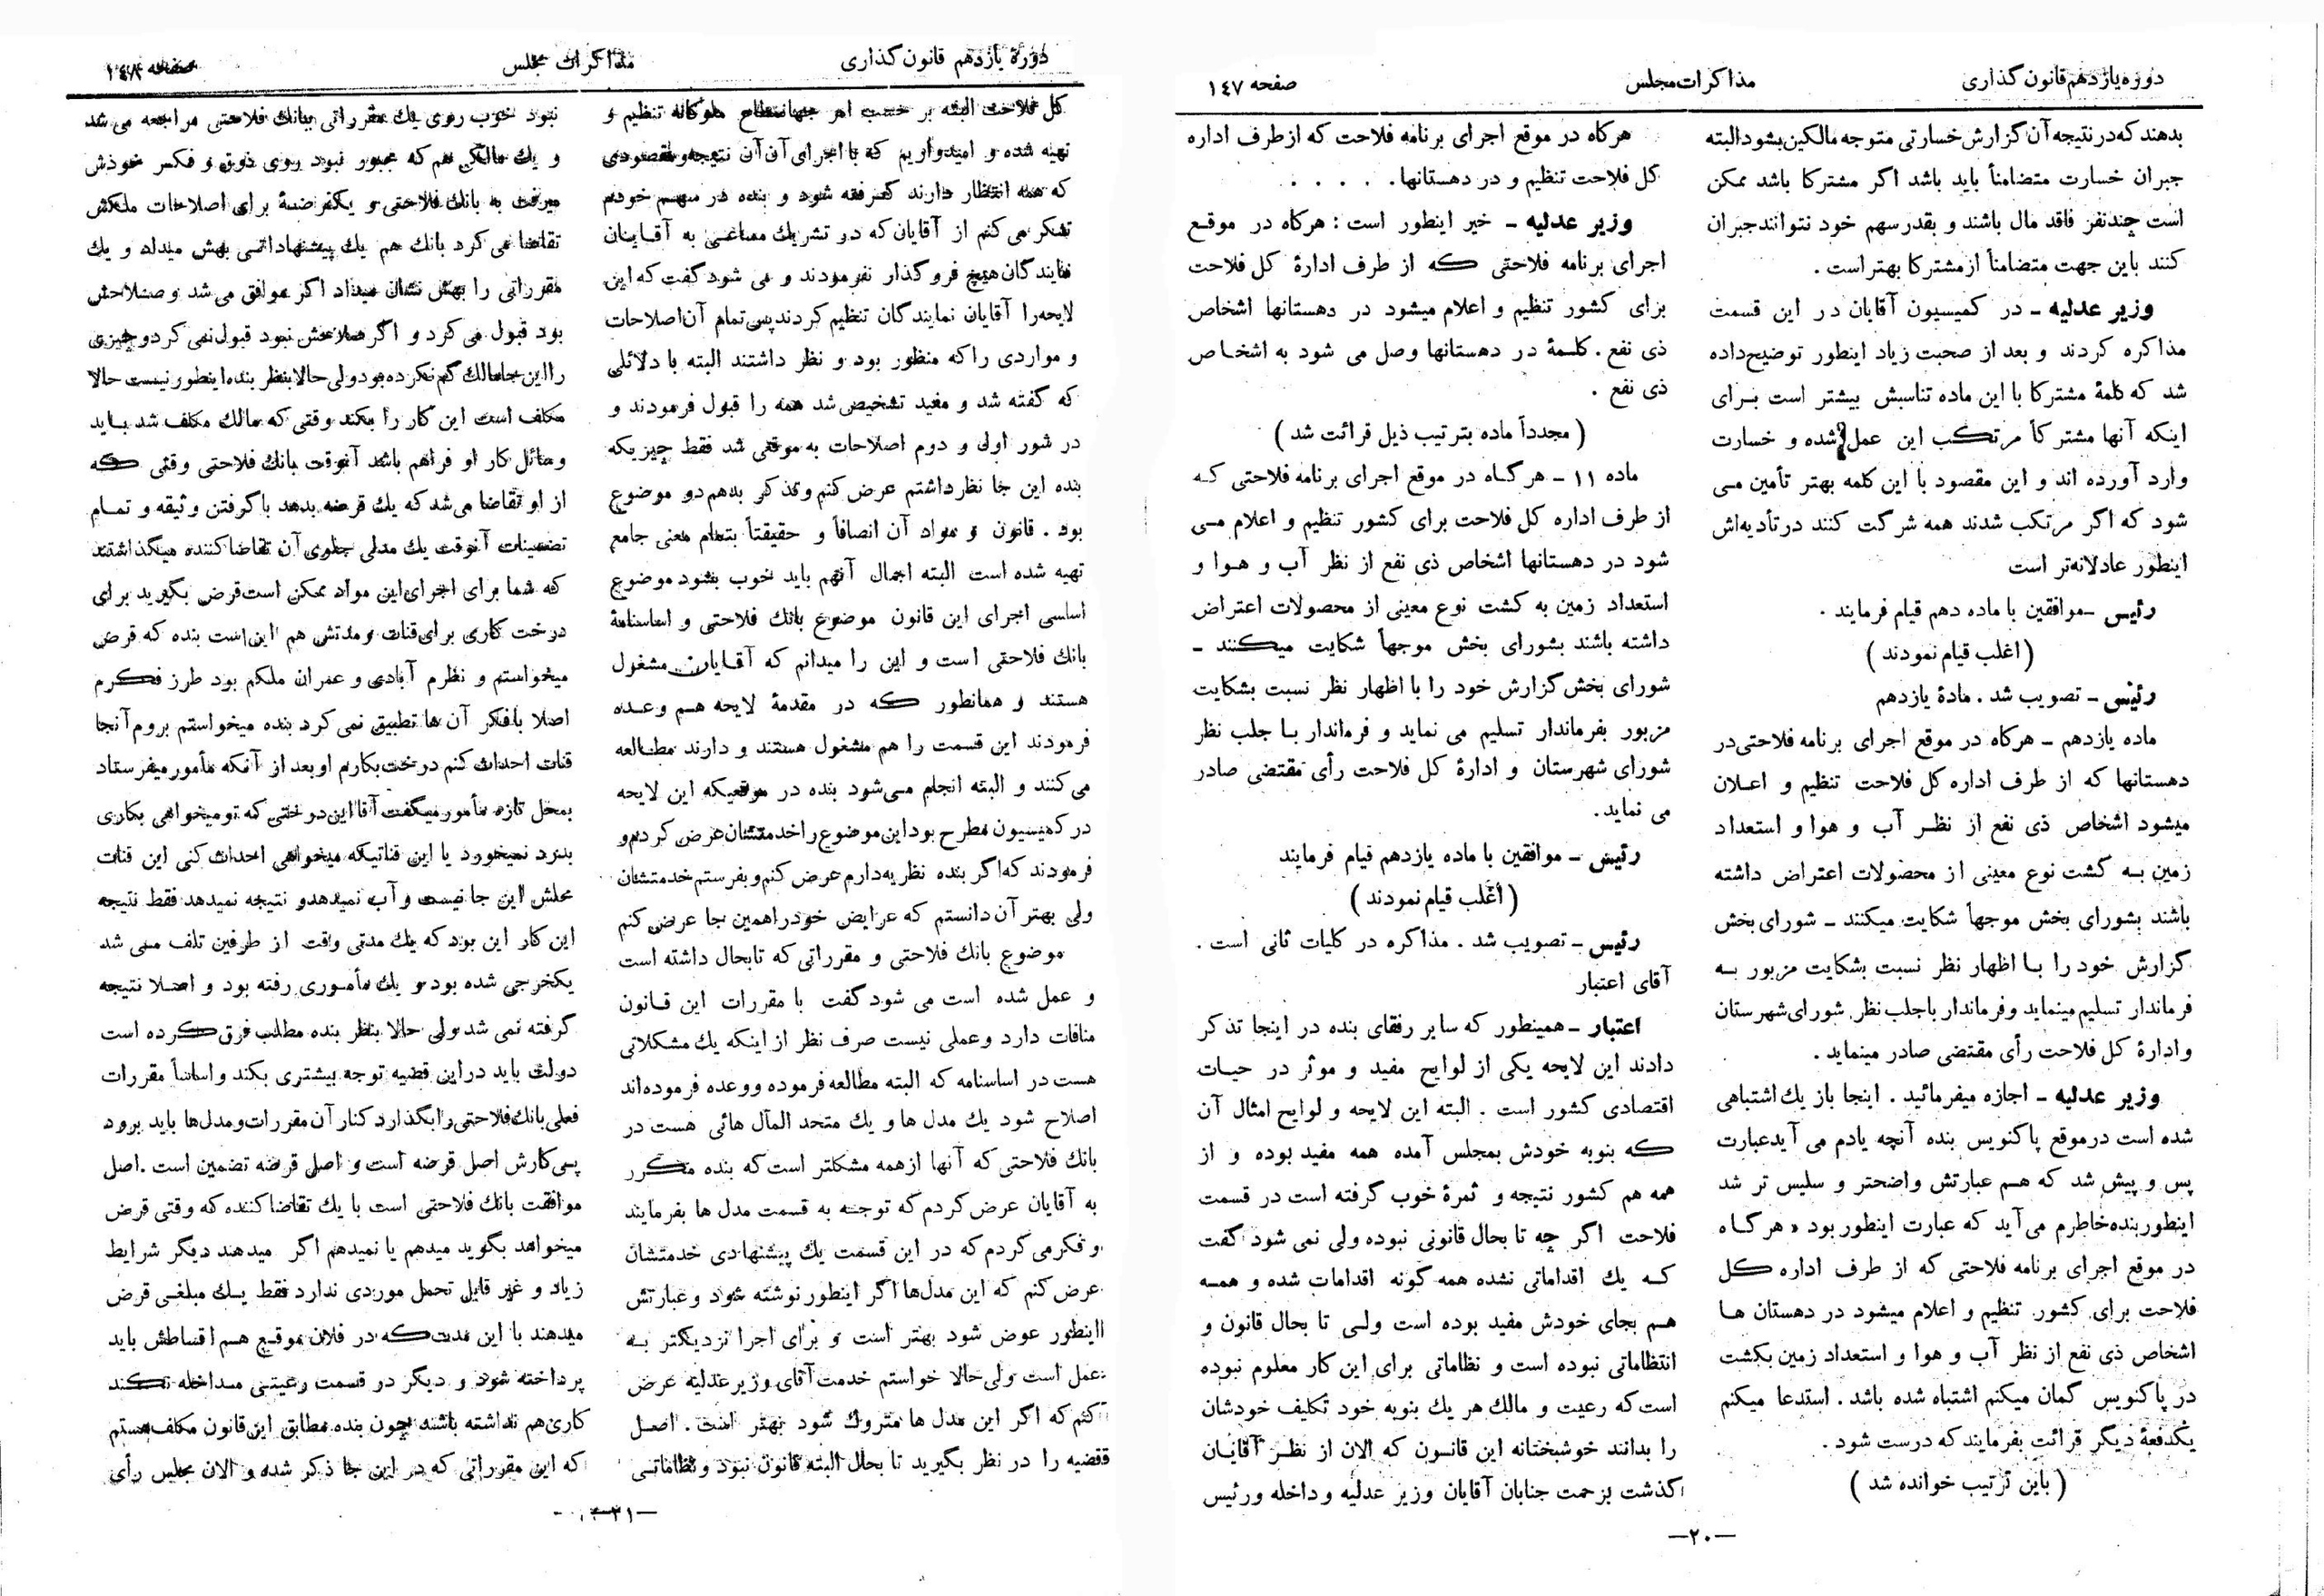 دوره یازدهم قانون گذاری
مذاکرات مجلس
صفحه ۱۴۷
بدهند که در نتیجه آن گزارش خسارتی متوجه مالکین بشود البته
جبران خسارت متضامناً باید باشد اگر مشترکا باشد ممکن
است چند نفر فاقد مال باشند و بقدر سهم خود نتوانند جبران
کنند باین جهت متضامناً از مشترکا بهتر است .
وزیر عدلیه ـ در کمیسیون آقایان در این قسمت
مذاکره کردند و بعد از صحبت زیاد اینطور توضیح داده
شد که کلمهٔ مشترکا با این ماده تناسبش بیشتر است برای
اینکه آنها مشترکاً مرتکب این عمل شده و خسارت
وارد آورده اند و این مقصود با این کلمه بهتر تأمین می
شود که اگر مرتکب شدند همه شرکت کنند در تأدیه‌اش
اینطور عادلانه‌تر است
رئیس ـ موافقین با ماده دهم قیام فرمایند .
( اغلب قیام نمودند )
رئیس ـ تصویب شد . مادهٔ یازدهم
ماده یازدهم ـ هرگاه در موقع اجرای برنامه فلاحتی در
دهستانها که از طرف اداره کل فلاحت تنظیم و اعلان
میشود اشخاص ذی نفع از نظر آب و هوا و استعداد
زمین به کشت نوع معینی از محصولات اعتراض داشته
باشند بشورای بخش موجهاً شکایت میکنند ـ شورای بخش
گزارش خود را با اظهار نظر نسبت بشکایت مزبور به
فرماندار تسلیم مینماید و فرماندار باجلب نظر شورای شهرستان
و ادارهٔ کل فلاحت رأی مقتضی صادر مینماید .
وزیر عدلیه ـ اجازه میفرمائید . اینجا باز یك اشتباهی
شده است در موقع پاکنویس بنده آنچه یادم می آید عبارت
پس و پیش شد که هم عبارتش واضحتر و سلیس تر شد
اینطور بنده خاطرم می‌آید که عبارت اینطور بود « هرگاه
در موقع اجرای برنامه فلاحتی که از طرف اداره کل
فلاحت برای کشور تنظیم و اعلام میشود در دهستان ها
اشخاص ذی نفع از نظر آب و هوا و استعداد زمین بکشت
در پاکنویس گمان میکنم اشتباه شده باشد . استدعا میکنم
یکدفعهٔ دیگر قرائت بفرمایند که درست شود .
( باین ترتیب خوانده شد )
هرگاه در موقع اجرای برنامه فلاحت که از طرف اداره
کل فلاحت تنظیم و در دهستانها . . . . .
وزیر عدلیه ـ خیر اینطور است : هرگاه در موقع
اجرای برنامه فلاحتی که از طرف ادارهٔ کل فلاحت
برای کشور تنظیم و اعلام میشود در دهستانها اشخاص
ذی نفع . کلمهٔ در دهستانها وصل می شود به اشخاص
ذی نفع .
( مجدداً ماده بترتیب ذیل قرائت شد )
ماده ۱۱ ـ هرگاه در موقع اجرای برنامه فلاحتی که
از طرف اداره کل فلاحت برای کشور تنظیم و اعلام می
شود در دهستانها اشخاص ذی نفع از نظر آب و هوا و
استعداد زمین به کشت نوع معینی از محصولات اعتراض
داشته باشند بشورای بخش موجهاً شکایت میکنند ـ
شورای بخش گزارش خود را با اظهار نظر نسبت بشکایت
مزبور بفرماندار تسلیم می نماید و فرماندار با جلب نظر
شورای شهرستان و ادارهٔ کل فلاحت رأی مقتضی صادر
می نماید .
رئیس ـ موافقین با ماده یازدهم قیام فرمایند
( اغلب قیام نمودند )
رئیس ـ تصویب شد . مذاکره در کلیات ثانی است .
آقای اعتبار
اعتبار ـ همینطور که سایر رفقای بنده در اینجا تذکر
دادند این لایحه یکی از لوایح مفید و موثر در حیات
اقتصادی کشور است . البته این لایحه و لوایح امثال آن
که بنوبه خودش بمجلس آمده همه مفید بوده و از
همه هم کشور نتیجه و ثمرهٔ خوب گرفته است در قسمت
فلاحت اگر چه تا بحال قانونی نبوده ولی نمی شود گفت
که یك اقداماتی نشده همه گونه اقدامات شده و همه
هم بجای خودش مفید بوده است ولی تا بحال قانون و
انتظاماتی نبوده است و نظاماتی برای این کار معلوم نبوده
است که رعیت و مالك هر یك بنوبه خود تکلیف خودشان
را بدانند خوشبختانه این قانون که الان از نظر آقایان
گذشت بزحمت جنابان آقایان وزیر عدلیه و داخله و رئیس
—۲۰—
دورهٔ یازدهم قانون گذاری
مذاکرات مجلس
صفحه ۱۴۸
کل فلاحت البته بر حسب امر جهانمطاع ملوکانه تنظیم و
تهیه شده و امیدواریم که با اجرای آن آن نتیجه و مقصودی
که همه انتظار دارند گرفته شود و بنده در سهم خودم
تشکر می کنم از آقایان که در تشریك مساعی به آقایان
نمایندگان هیچ فروگذار نفرمودند و می شود گفت که این
لایحه را آقایان نمایندگان تنظیم کردند پس تمام آن اصلاحات
و مواردی را که منظور بود و نظر داشتند البته با دلائلی
که گفته شد و مفید تشخیص شد همه را قبول فرمودند و
در شور اولی و دوم اصلاحات به موقعی شد فقط چیزیکه
بنده این جا نظر داشتم عرض کنم و تذکر بدهم دو موضوع
بود . قانون و مواد آن انصافاً و حقیقتاً بتمام معنی جامع
تهیه شده است البته اجمال آنهم باید خوب بشود موضوع
اساسی اجرای این قانون موضوع بانك فلاحتی و اساسنامهٔ
بانك فلاحتی است و این را میدانم که آقایان مشغول
هستند و همانطور که در مقدمهٔ لایحه هم وعده
فرمودند این قسمت را هم مشغول هستند و دارند مطالعه
می کنند و البته انجام می‌شود بنده در موقعیکه این لایحه
در کمیسیون مطرح بود این موضوع را خدمتشان عرض کردم و
فرمودند که اگر بنده نظریه دارم عرض کنم و بفرستم خدمتشان
ولی بهتر آن دانستم که عرایض خود را همین جا عرض کنم
موضوع بانك فلاحتی و مقرراتی که تابحال داشته است
و عمل شده است می شود گفت با مقررات این قانون
منافات دارد و عملی نیست صرف نظر از اینکه یك مشکلاتی
هست در اساسنامه که البته مطالعه فرموده و وعده فرموده‌اند
اصلاح شود یك مدل ها و یك متحد المآل هائی هست در
بانك فلاحتی که آنها از همه مشکلتر است که بنده مکرر
به آقایان عرض کردم که توجه به قسمت مدل ها بفرمایند
و فکر می کردم که در این قسمت یك پیشنهادی خدمتشان
عرض کنم که این مدل‌ها اگر اینطور نوشته شود و عبارتش
اینطور عوض شود بهتر است و برای اجرا نزدیکتر به
عمل است ولی حالا خواستم خدمت آقای وزیر عدلیه عرض
کنم که اگر این مدل ها متروك شود بهتر است . اصل
قضیه را در نظر بگیرید تا بحال البته قانون نبود و نظاماتی
نبود خوب روی یك مقرراتی ببانك فلاحتی مراجعه می شد
و یك مالکی هم که مجبور نبود روی ذوق و فکر خودش
میرفت به بانك فلاحتی و یکقرضهٔ برای اصلاحات ملکش
تقاضا می کرد بانك هم یك پیشنهاداتی بهش میداد و یك
مقرراتی را بهش نشان میداد اگر موافق می شد و صلاحش
بود قبول می کرد و اگر صلاحش نبود قبول نمی کرد و چیزی
را این جا مالك گم نکرده بود ولی حالا بنظر بنده اینطور نیست حالا
مکلف است این کار را بکند وقتی که مالك مکلف شد باید
وسائل کار او فراهم باشد آنوقت بانك فلاحتی وقتی که
از او تقاضا می شد که یك قرضه بدهد با گرفتن وثیقه و تمام
تضمینات آنوقت یك مدلی جلوی آن تقاضا کننده میگذاشتند
که شما برای اجرای این مواد ممکن است قرض بگیرید برای
درخت کاری برای قنات و مدتش هم این است بنده که قرض
میخواستم و نظرم آبادی و عمران ملکم بود طرز فکرم
اصلا با فکر آن ها تطبیق نمی کرد بنده میخواستم بروم آنجا
قنات احداث کنم درخت بکارم او بعد از آنکه مأمور میفرستاد
بمحل تازه مأمور میگفت آقا این درختی که تو میخواهی بکاری
بدرد نمیخورد یا این قناتیکه میخواهی احداث کنی این قنات
محلش این جا نیست و آب نمیدهد و نتیجه نمیدهد فقط نتیجه
این کار این بود که یك مدتی وقت از طرفین تلف می شد
یکخرجی شده بود و یك مأموری رفته بود و اصلا نتیجه
گرفته نمی شد ولی حالا بنظر بنده مطلب فرق کرده است
دولت باید در این قضیه توجه بیشتری بکند و اساساً مقررات
فعلی بانك فلاحتی را بگذارد کنار آن مقررات و مدل‌ها باید برود
پی کارش اصل قرضه است و اصل قرضه تضمین است . اصل
موافقت بانك فلاحتی است با یك تقاضا کننده که وقتی قرض
میخواهد بگوید میدهم یا نمیدهم اگر میدهند دیگر شرایط
زیاد و غیر قابل تحمل موردی ندارد فقط یك مبلغی قرض
میدهند با این مدت که در فلان موقع هم اقساطش باید
پرداخته شود و دیگر در قسمت رعیتی مداخله نکند
کاری هم نداشته باشند چون بنده مطابق این قانون مکلف هستم
که این مقرراتی که در این جا ذکر شده و الان مجلس رأی
—۲۱—